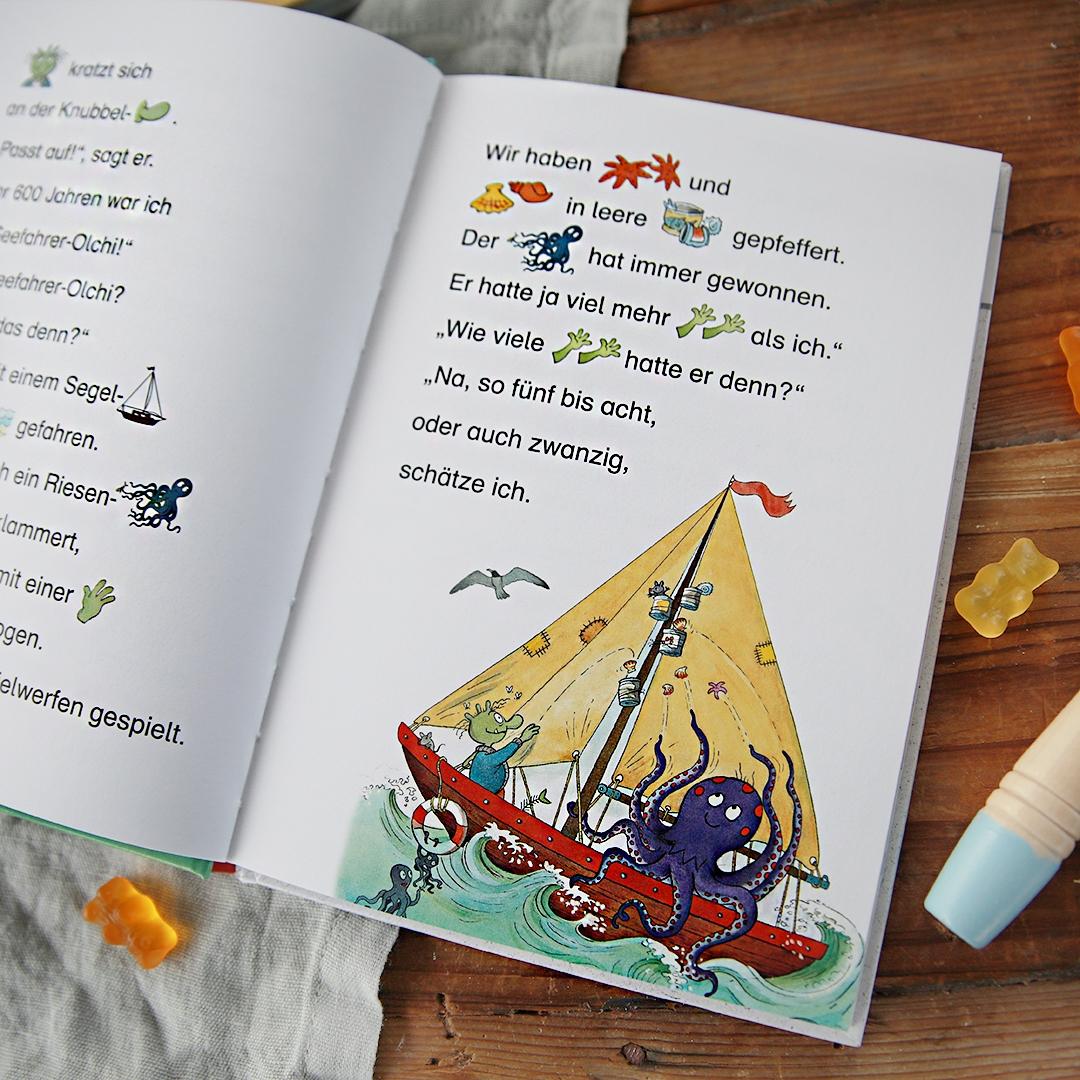 kratzt sich
an der Knubbel-.
Passt auf!“, sagt er.
600 Jahren war ich
Seefahrer-Olchi!“
Seefahrer-Olchi?
das denn?“
einem Segel-
gefahren.
ein Riesen-
klammert,
mit einer
gespielt.
Wir haben und
in leere gepfeffert.
Der hat immer gewonnen.
Er hatte ja viel mehr als ich.“
„Wie viele hatte er denn?“
„Na, so fünf bis acht,
oder auch zwanzig,
schätze ich.